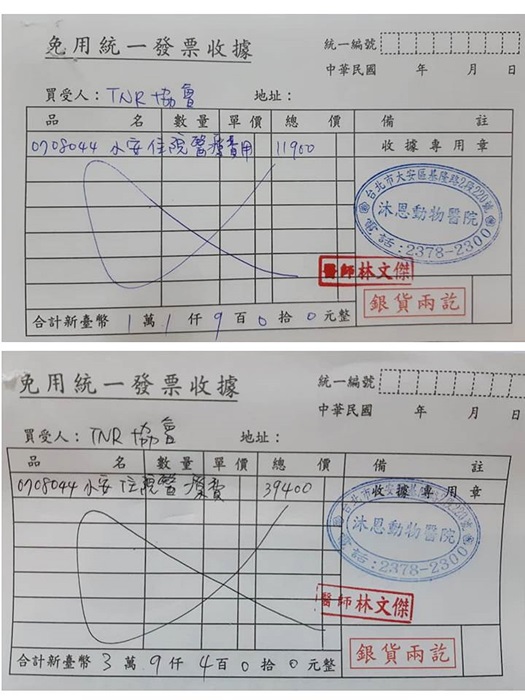 免用統一發票收據
統一編號
中華民國 年 月 日
買受人：TNR協會 地址：
品名 數量 單價 總價 備註
0708044 水安住院醫療費用 11900 收據專用章
台北市大安區基隆路2段220號
沐恩動物醫院
電話：2378-2300
醫師林文傑
銀貨兩訖
合計新臺幣 1萬1仟9百0拾0元整
免用統一發票收據
統一編號
中華民國 年 月 日
買受人：TNR協會 地址：
品名 數量 單價 總價 備註
0708044 水安住院醫療費 39400 收據專用章
台北市大安區基隆路2段220號
沐恩動物醫院
電話：2378-2300
醫師林文傑
銀貨兩訖
合計新臺幣 3萬9仟4百0拾0元整